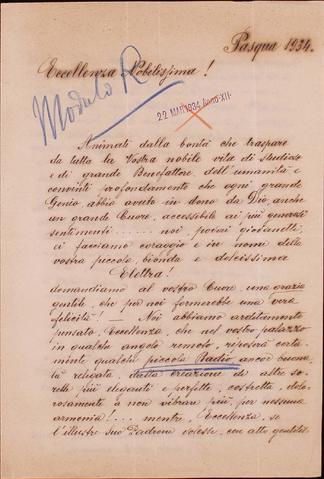 Pasqua 1934.
Eccellenza Nobilissima!
Modulo R
22 MAR 1934 Anno XII
Animati dalla bontà che traspare
da tutta la Vostra nobile vita di studioso
e di grande Benefattore dell'umanità e
convinti profondamente che ogni grande
Genio abbia avuto in dono da Dio, anche
un grande Cuore, accessibile ai più generosi
sentimenti ...... noi poveri giovanetti,
ci facciamo coraggio e in nome della
vostra piccola, bionda e dolcissima
Elettra!
domandiamo al vostro Cuore una grazia
gentile, che per noi formerebbe una vera
felicità! — Noi abbiamo arditamente
pensato, Eccellenza, che nel vostro palazzo
in qualche angolo remoto, riposerà certa-
mente qualche piccola Radio ancor buona,
là relegata, dalla creazione di altre so-
relle più eleganti e perfette, costretta, dolo-
rosamente a non vibrare più, per nessuna
armonia!... mentre, Eccellenza, se
l'illustre suo Padrone volesse, con atto gentiles